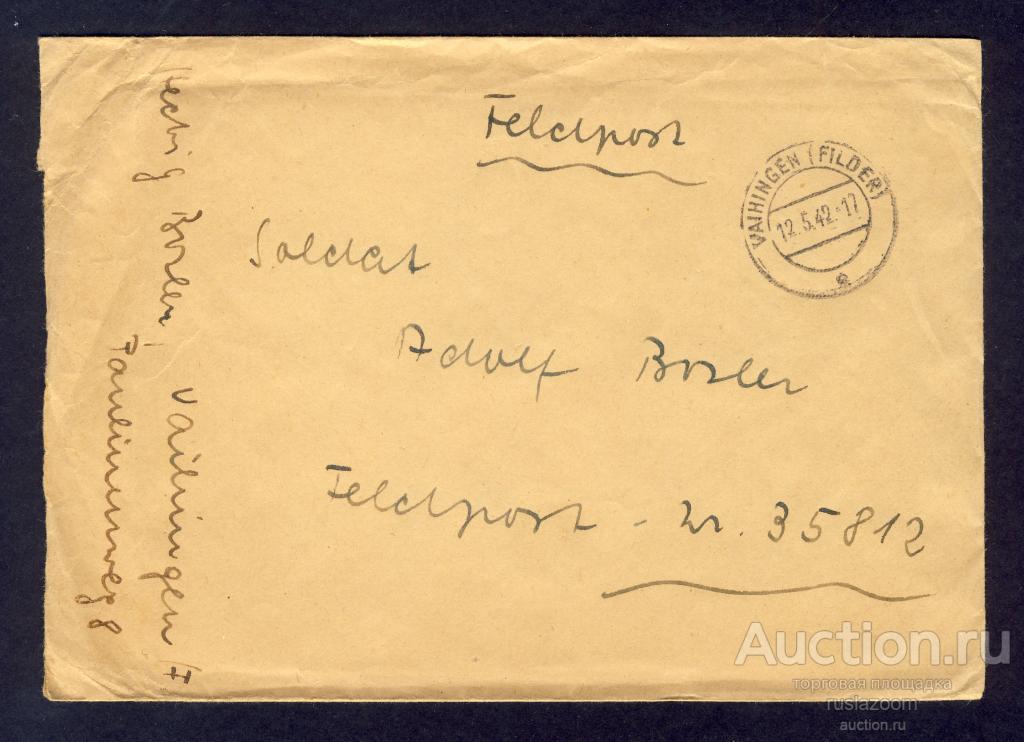 Feldpost
VAIHINGEN (FILDER)
12.5.42.-17
a
Soldat
Adolf Bosler
Feldpost - Nr. 35812
Bosler, Vaihingen /F
Paulinenweg 8
Auction.ru
торговая площадка
ruslazoom
auction.ru